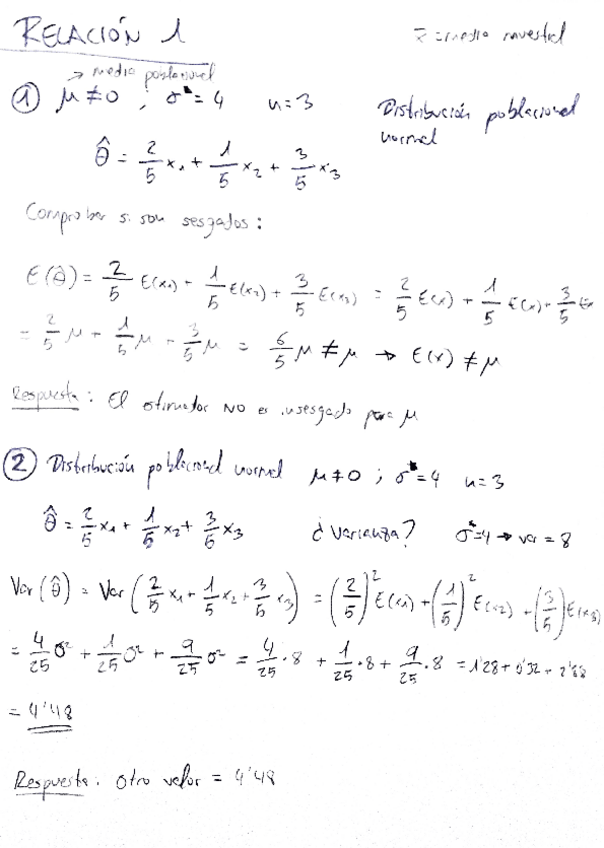 RELACIÓN 1
x̄ = media muestral
→ media poblacional
① μ ≠ 0 ; σ² = 4 n = 3 Distribución poblacional normal
θ̂ = 2/5 x₁ + 1/5 x₂ + 3/5 x₃
Comprobar si son sesgados:
E(θ̂) = 2/5 E(x₁) + 1/5 E(x₂) + 3/5 E(x₃) = 2/5 E(x) + 1/5 E(x) + 3/5 E
= 2/5 μ + 1/5 μ + 3/5 μ = 6/5 μ ≠ μ → E(x) ≠ μ
Respuesta: El estimador NO es insesgado para μ
② Distribución poblacional normal μ ≠ 0 ; σ² = 4 n = 3
θ̂ = 2/5 x₁ + 1/5 x₂ + 3/5 x₃ ¿Varianza? σ² = 4 → var = 8
Var(θ̂) = Var(2/5 x₁ + 1/5 x₂ + 3/5 x₃) = (2/5)² E(x₁) + (1/5)² E(x₂) + (3/5) E(x₃)
= 4/25 σ² + 1/25 σ² + 9/25 σ² = 4/25 · 8 + 1/25 · 8 + 9/25 · 8 = 1'28 + 0'32 + 2'88
= 4'48
Respuesta: Otro valor = 4'48